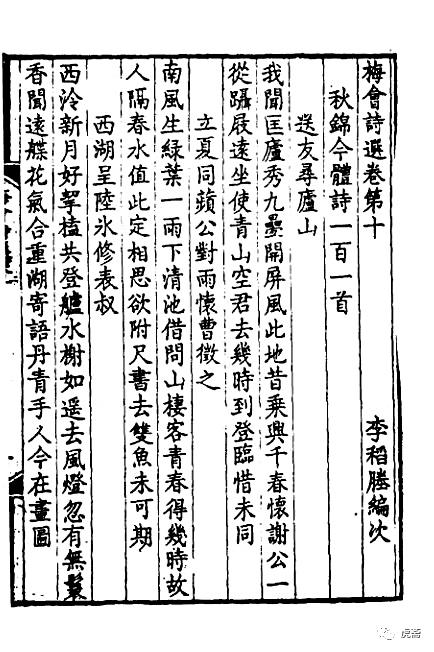 梅會詩選卷第十 李稻塍編次
秋錦今體詩一百一首
送友尋廬山
我聞匡廬秀九疊開屏風此地昔乘興千春懷謝公一
從躡屐遠坐使青山空君去幾時到登臨惜未同
立夏同蘋公對雨懷曹徵之
南風生綠葉一雨下清池借問山棲客青春得幾時故
人隔春水值此定相思欲附尺書去雙魚未可期
西湖呈陸氷修表叔
西泠新月好挈榼共登艫水榭如遥去風燈忽有無鬟
香聞遠艓花氣合重湖寄語丹青手人今在畫圖
虎斋